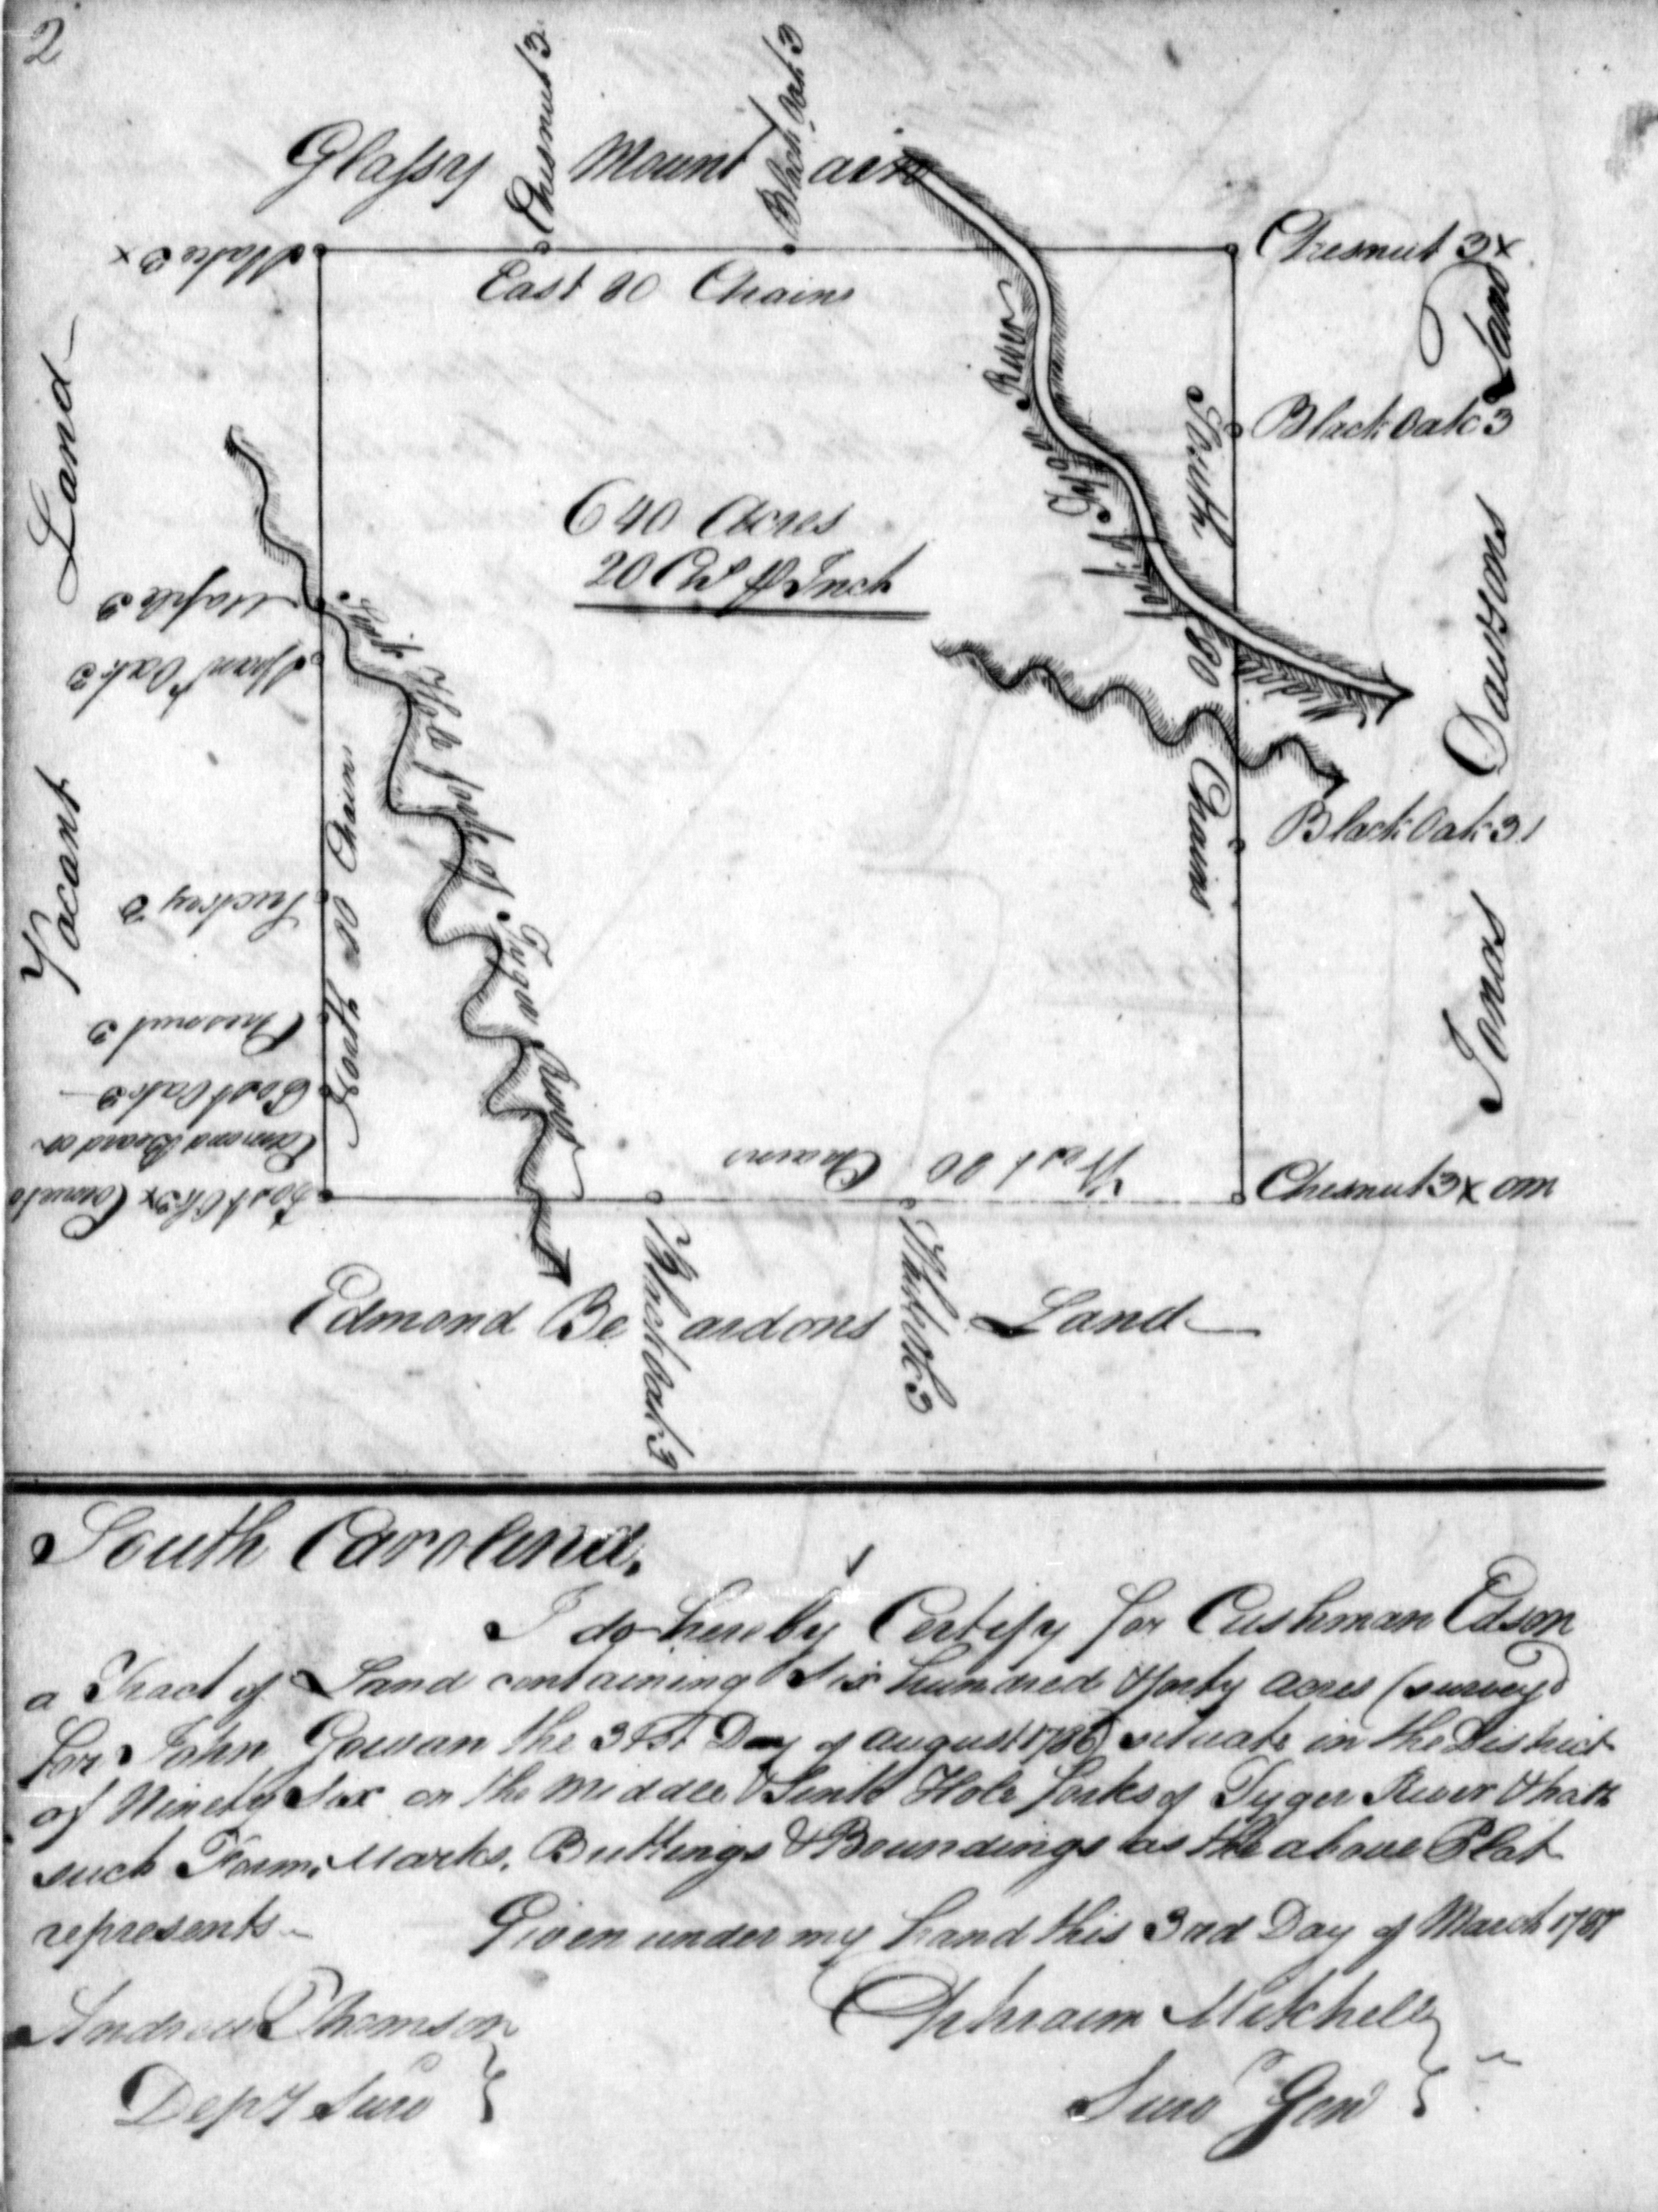 2
Chesnut 3
Black Oak 3
Glassy Mountain
Stake 3x
Chesnut 3x
East 80 Chains
Land
River
Tyger
fork of
Middle
South 80 Chains
Black Oak 3
Land
640 Acres
20 Chs pr Inch
Maple 3
Span Oak 3
Vacant
Hickory 3
Chesnut 3
Post Oak 3
South 80 Chains
Hole fork of Tyger River
Dawsons
Black Oak 3
Jonas
Edmond Beardon
Post Ok 3x Corner to
West 80 Chains
Chesnut 3x om
Edmond Beardons Land
Black Oak 3
3
South Carolina.
I do hereby Certify for Cushman Edson
a Tract of Land containing Six hundred & forty acres (survey'd
for John Gowan the 31st Day of August 1786) situate in the District
of Ninety Six on the Middle & Sink Hole forks of Tyger River & hath
such Form, Marks, Buttings & Boundings as the above Plat
represents
Given under my hand this 3rd Day of March 1787
Andrew Thomson
Depy Surv
Ephraim Mitchell
Surv Gen